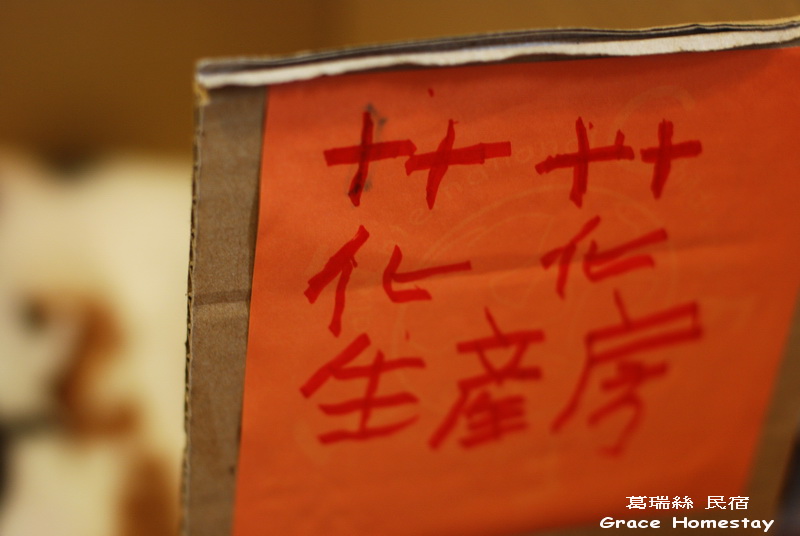 花花
生產房
葛瑞絲 民宿
Grace Homestay